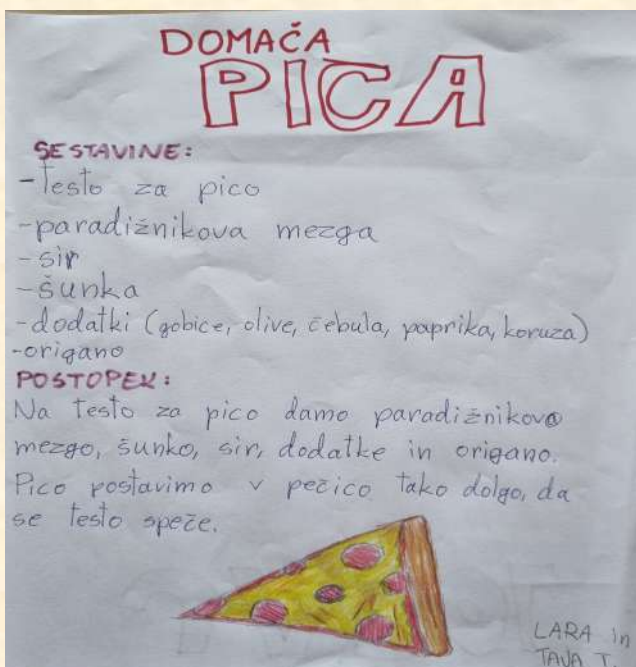 DOMAČA
PICA
SESTAVINE:
- Testo za pico
- paradižnikova mezga
- sir
- šunka
- dodatki (gobice, olive, čebula, paprika, koruza)
- origano
POSTOPEK:
Na testo za pico damo paradižnikovo
mezgo, šunko, sir, dodatke in origano.
Pico postavimo v pečico tako dolgo, da
se testo speče.
LARA in
TAJA T.